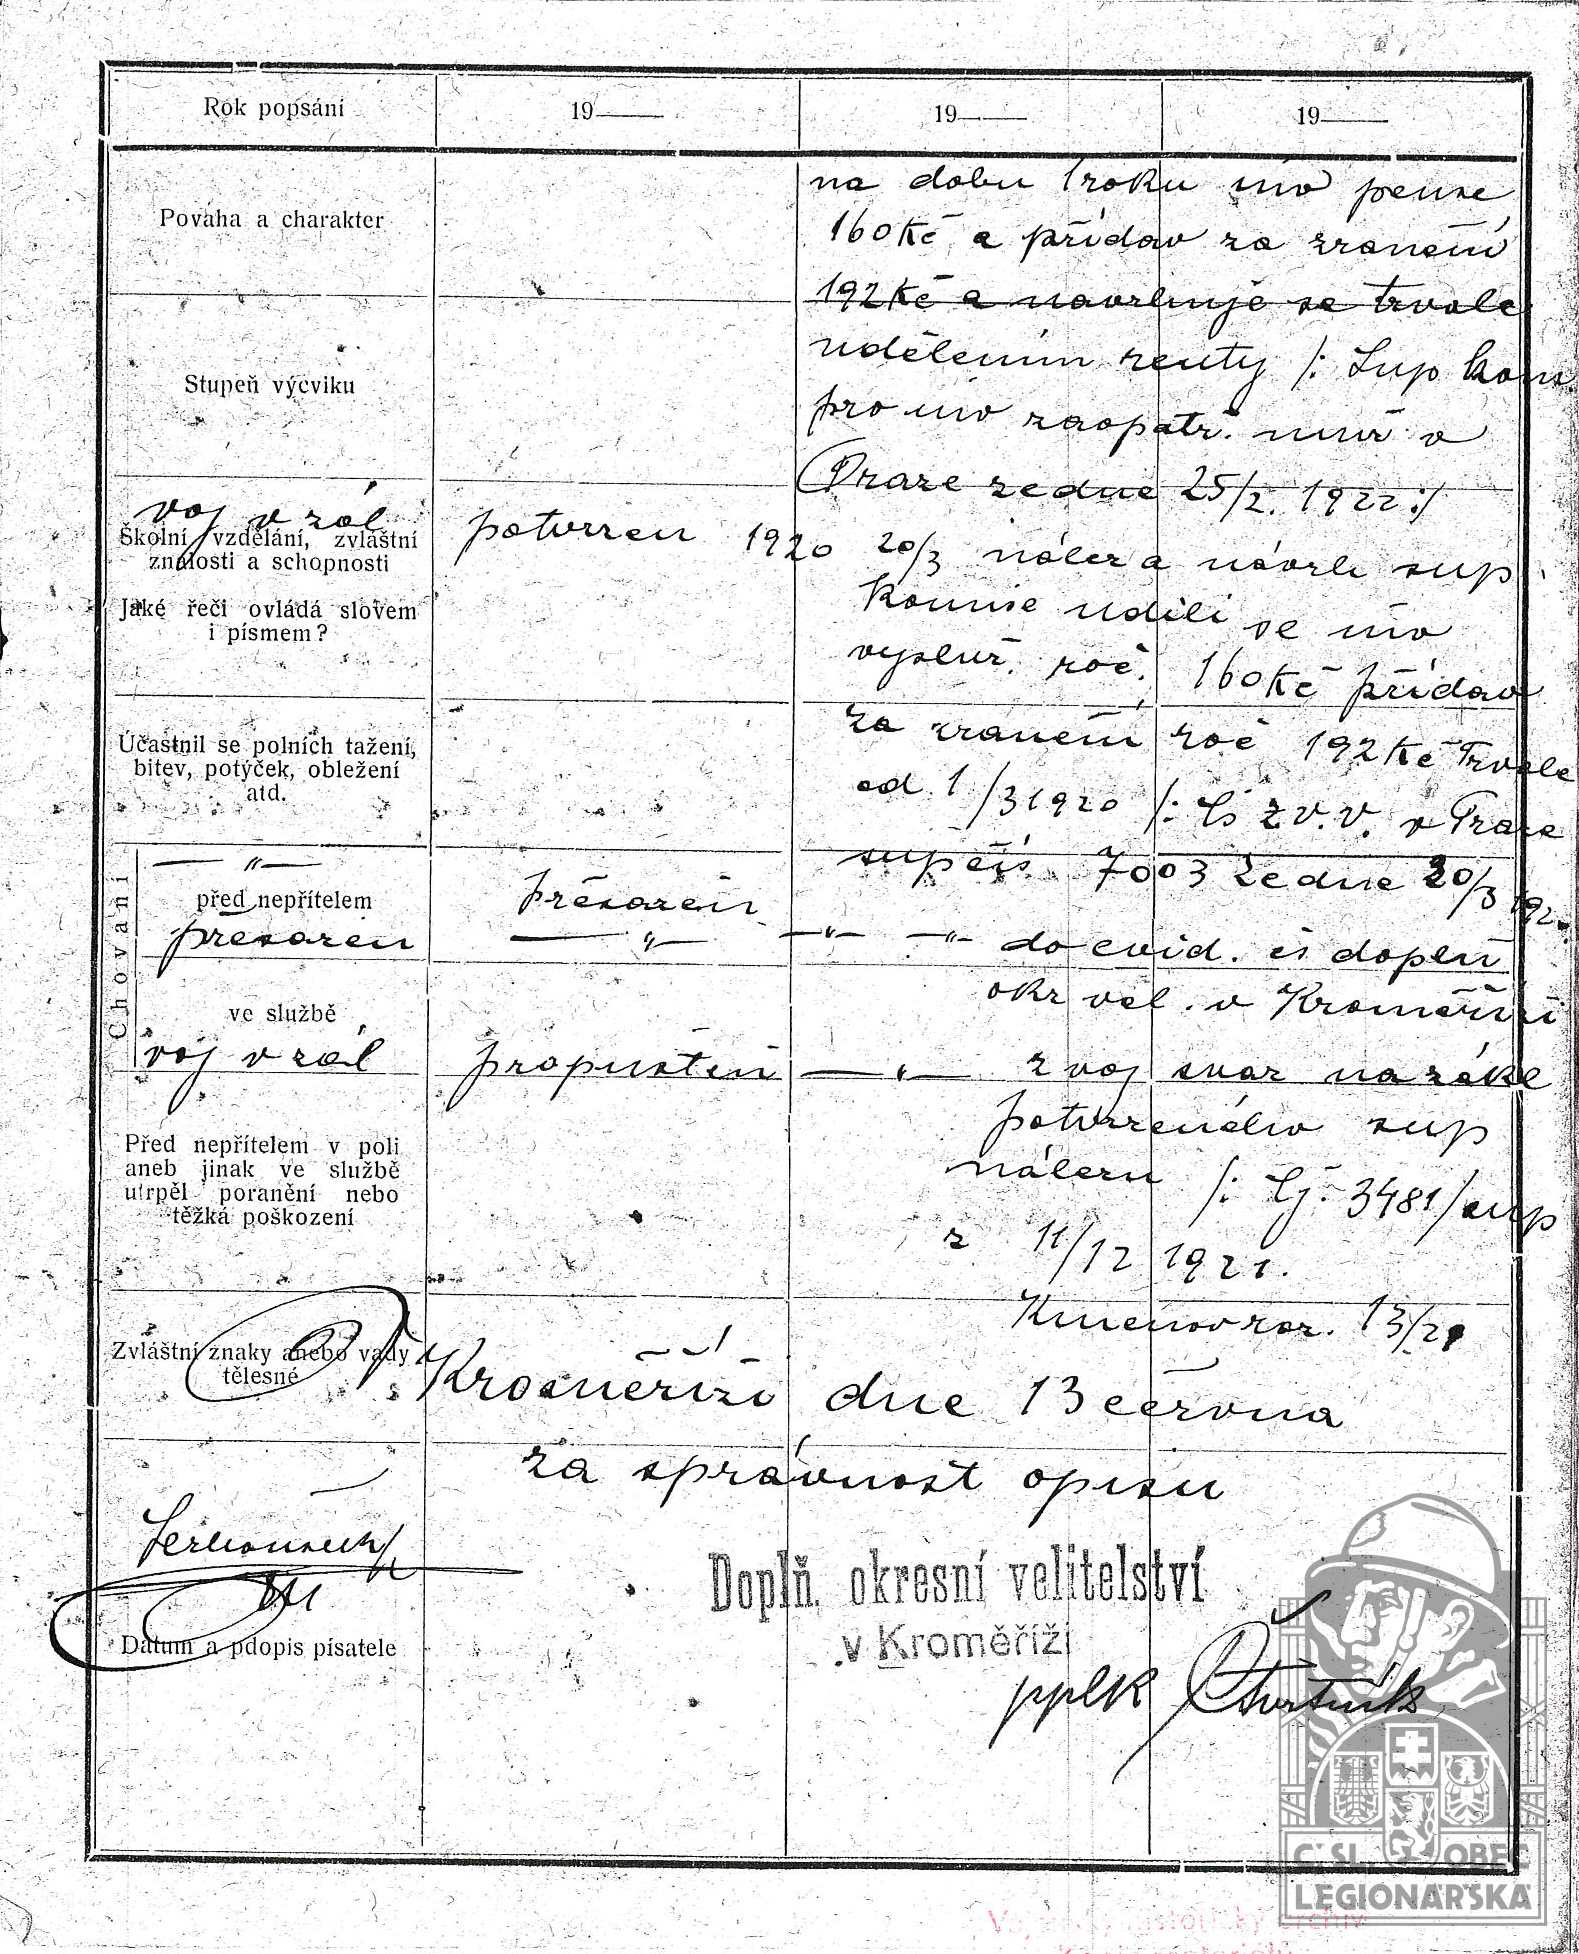 Rok popsání 19 19 19
na dobu 1 roku inv pense
Povaha a charakter
160 Kč a přídav za zranění
192 Kč a navrhuje se trvale
udělením renty /: Sup kom.
Stupeň výcviku
pro inv zaopatř. v
Praze ze dne 25/2. 1922 :/
voj v zál potvrzen 1920 20/3 nález a návrh sup.
Školní vzdělání, zvláštní
znalosti a schopnosti
Jaké řeči ovládá slovem
i písmem?
komise udílí se inv
vysluž. roč. 160 Kč přídav
za zranění roč 192 Kč Trvale
Účastnil se polních tažení,
bitev, potýček, obležení
atd.
od 1/3 1920 /: Z V. V. v Praze
7003 ze dne 20/3 192
Chování
— " —
před nepřítelem přeřazen
přeřazen — " — — " — — " — do evid. čs doplň
okr vel. v Kroměříži
ve službě
voj v zál propuštěn — " — z voj svaz na zákl
potvrzeného sup
Před nepřítelem v poli
aneb jinak ve službě
utrpěl poranění nebo
těžká poškození
nálezu /: Čj. 3481/sup
z 11/12 1921.
Kmenov roz. 13/21
Zvláštní znaky anebo vady
tělesné
V Kroměříži dne 13 června
za správnost opisu
Doplň. okresní velitelství
v Kroměříži
Datum a pdopis písatele
pplk Čtvrtník
ČSL. OBEC
LEGIONÁŘSKÁ